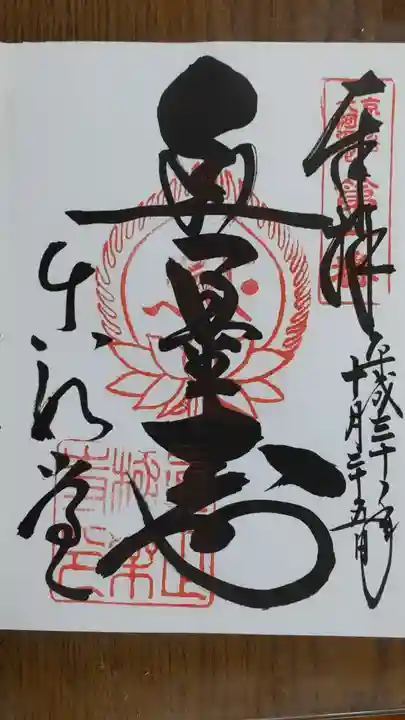 奉拝
平成三十年
十月二十五日
無量寿
真如堂